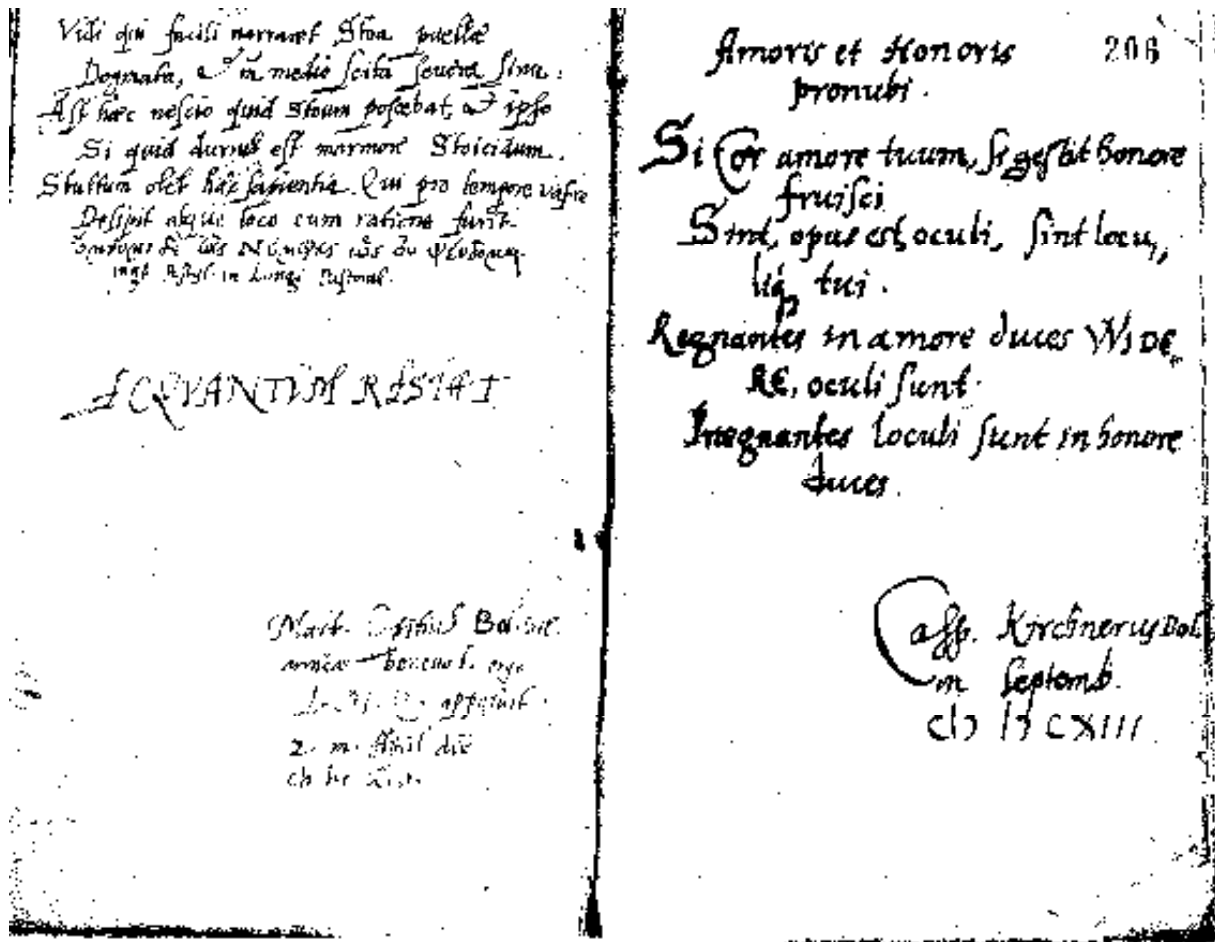 Vidi qui facili narraret Stoa puellae
Dogmata, et in medio scita severa sinu:
Ast haec nescio quid Stoum poscebat, et ipso
Si quid durius est marmore Stoicidum.
Stultum olet haec sapientia. Qui pro tempore
Desipit atque loco cum ratione furit.
in Longi Pastoral.
ECQVANTVM RESTAT
Mart. Opitius
benevol. ergo
apposuit.
2. m. April die
Amoris et Honoris
206
pronubi.
Si Cor amore tuum, si gestit honore
fruisci
Sint, opus est, oculi, sint locu,
liq; tui.
Regnantes in amore duces WIDE
RE, oculi sunt.
Pregnantes loculi sunt in honore
duces.
Casp. Kirchnerus Bol.
m Septemb.
cIɔ Iɔ CXIII